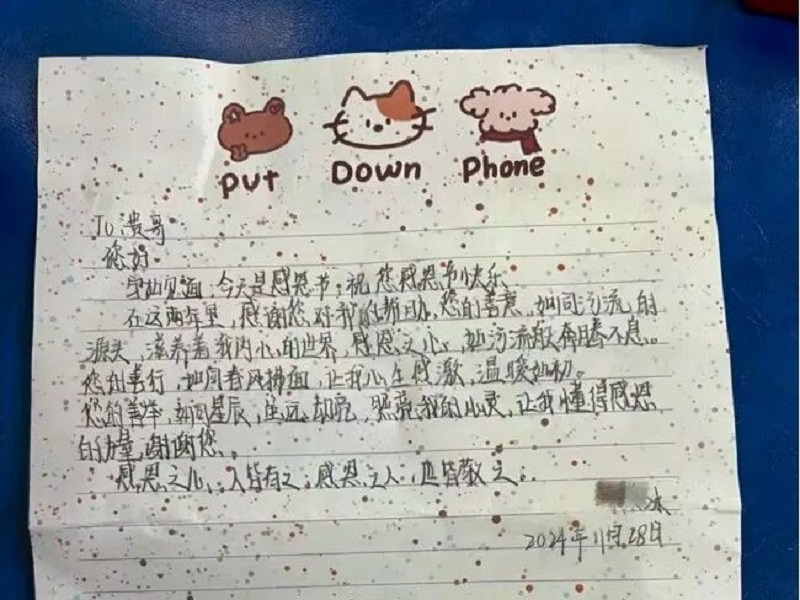 Put Down Phone
To 溃哥
您好
穿山见面,今天是感恩节,祝您感恩节快乐
在这两年里,感谢您对我的帮助,您的善意,如同河流的
源头,滋养着我内心的世界,感恩之心,如河流般奔腾不息。
您的善行,如同春风拂面,让我心生感激,温暖如初。
您的善举,如同星辰,虽远却亮,照亮我的心灵,让我懂得感恩
的力量,谢谢您。
感恩之心,人皆有之,感恩之人,也皆敬之。
2024年11月28日